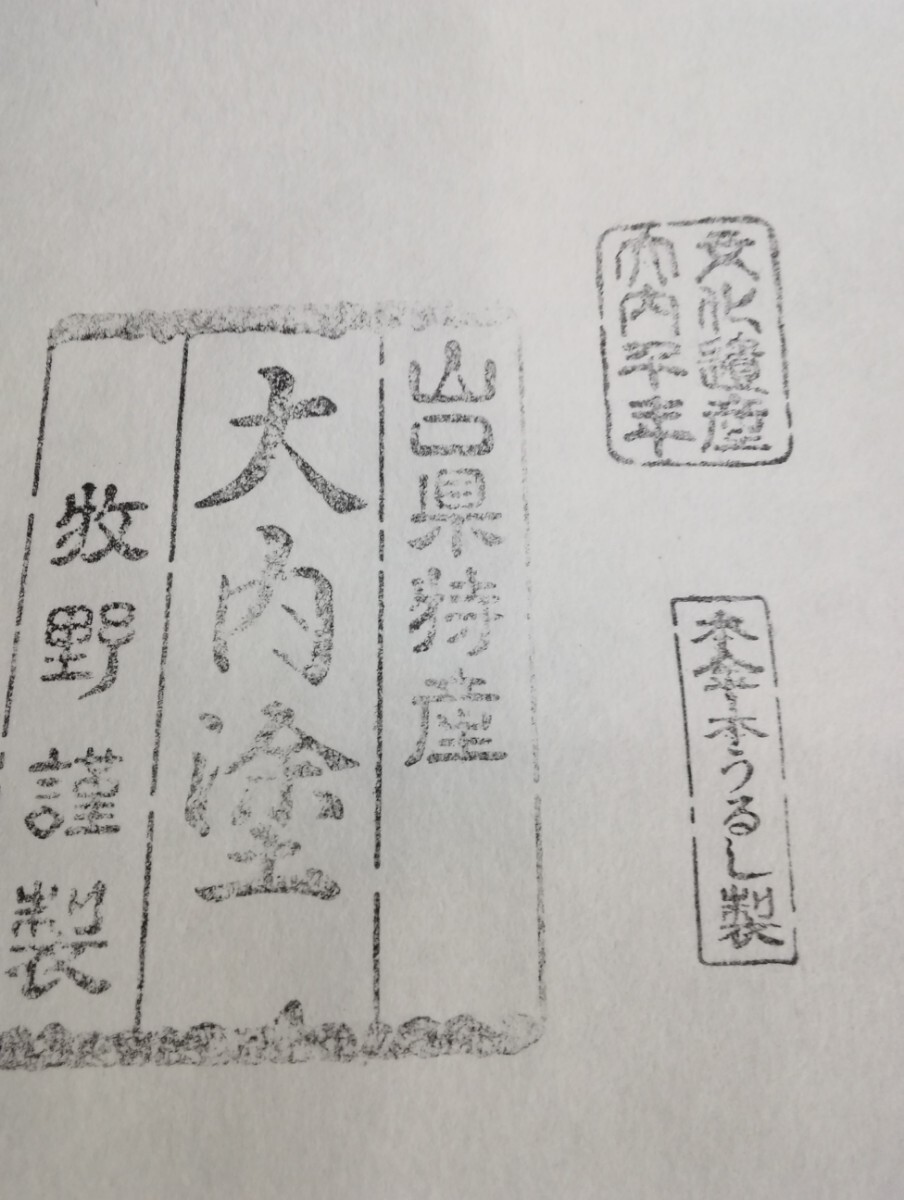 文化遺産
大内千年
本金本うるし製
山口県特産
大内塗
牧野謹製